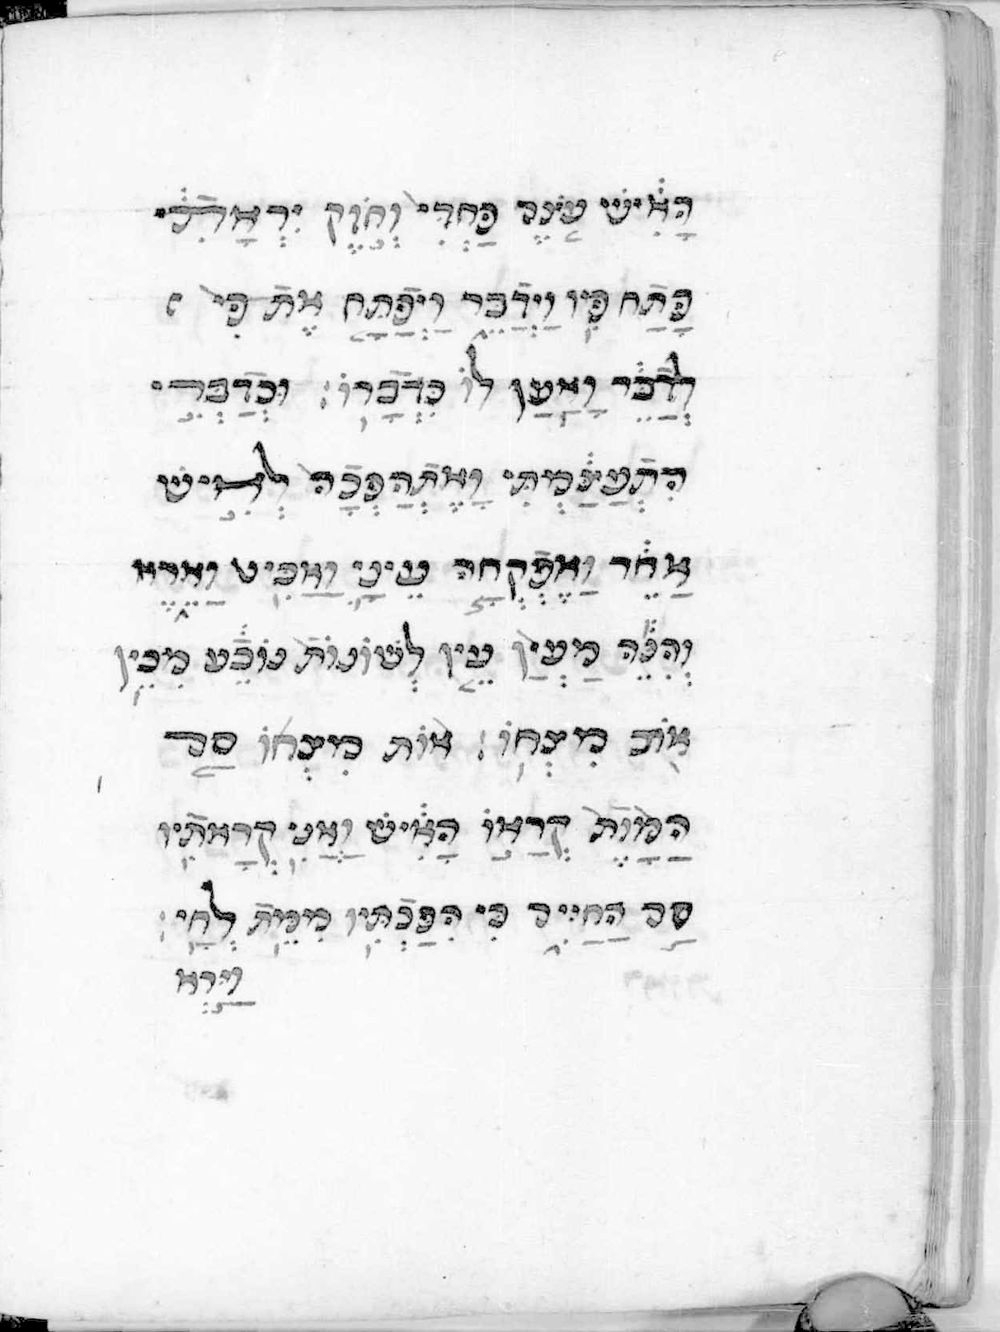 הָאִישׁ עֹצֶם כַּחְדִי וְחֹזֶק יִרְאָתִי
פָּתַח פִּיו וַיְדַבֵּר וַיִּפְתַּח אֶת פִּי
לְדַבֵּר וָאַעַן לוֹ כִּדְבָרוֹ: וּכְדַבְּרִי
הִתְעַצַּמְתִּי וָאֶתְהַפְּכָה לְאִישׁ
אַחֵר וָאֶפְקְחָה עֵינַי וְאַבִּיט וָאֶרְאֶ
וְהִנֵּה מַעְיַן עֵין לְשׁוֹנוֹת נוֹבֵעַ מִבֵּין
אוֹת מִצְחוֹ: אוֹת מִצְחוֹ סַם
הַמָּוֶת קְרָאוֹ הָאִישׁ וַאֲנִי קְרָאתִיו
סַם הַחַיִּים כִּי הֲפַכְתִּיו מִמֵּת לְחַי:
וַיַּרְא